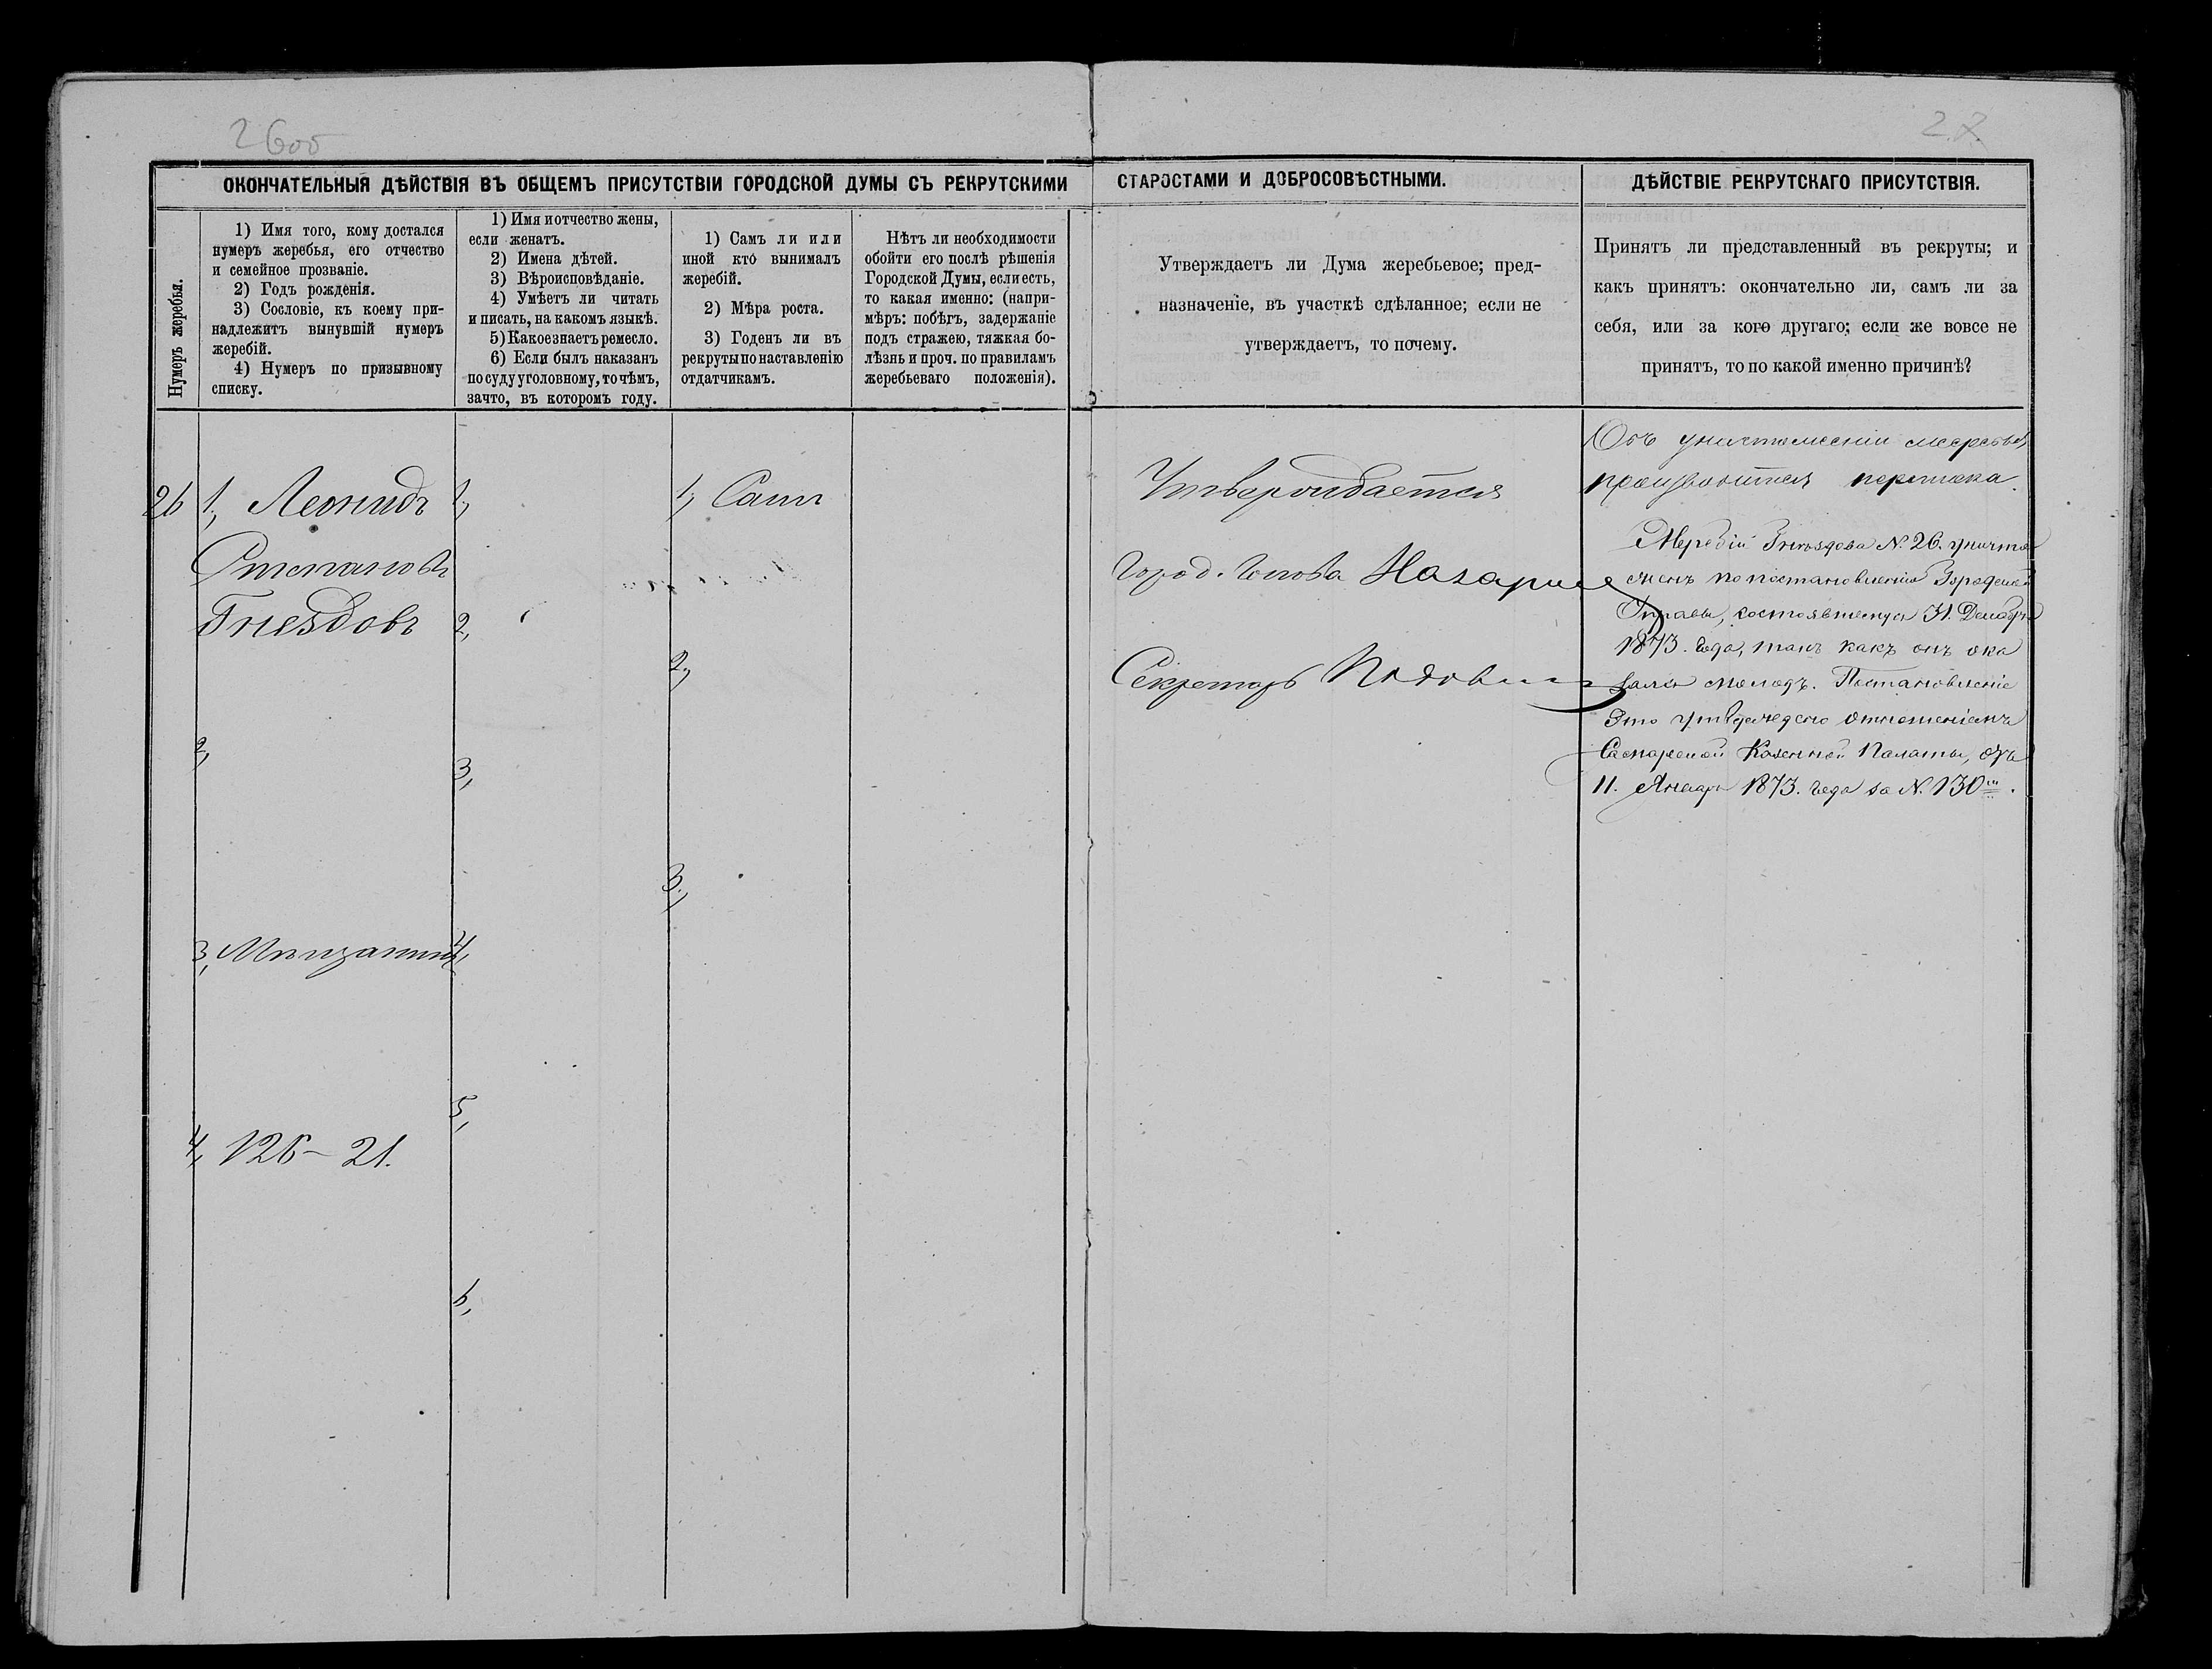 26об
27
ОКОНЧАТЕЛЬНЫЯ ДѢЙСТВІЯ ВЪ ОБЩЕМЪ ПРИСУТСТВІИ ГОРОДСКОЙ ДУМЫ СЪ РЕКРУТСКИМИ
СТАРОСТАМИ И ДОБРОСОВѢСТНЫМИ.
ДѢЙСТВІЕ РЕКРУТСКАГО ПРИСУТСТВІЯ.
Нумеръ жеребья.
1) Имя того, кому достался
нумеръ жеребья, его отчество
и семейное прозваніе.
2) Годъ рожденія.
3) Сословіе, къ коему при-
надлежитъ вынувшій нумеръ
жеребій.
4) Нумеръ по призывному
списку.
1) Имя и отчество жены,
если женатъ.
2) Имена дѣтей.
3) Вѣроисповѣданіе.
4) Умѣетъ ли читать
и писать, на какомъ языкѣ.
5) Какое знаетъ ремесло.
6) Если былъ наказанъ
по суду уголовному, то чѣмъ,
за что, въ которомъ году.
1) Самъ ли или
иной кто вынималъ
жеребій.
2) Мѣра роста.
3) Годенъ ли въ
рекруты по наставленію
отдатчикамъ.
Нѣтъ ли необходимости
обойти его послѣ рѣшенія
Городской Думы, если есть,
то какая именно: (напри-
мѣръ: побѣгъ, задержаніе
подъ стражею, тяжкая бо-
лѣзнь и проч. по правиламъ
жеребьеваго положенія).
Утверждаетъ ли Дума жеребьевое; пред-
назначеніе, въ участкѣ сдѣланное; если не
утверждаетъ, то почему.
Принятъ ли представленный въ рекруты; и
какъ принятъ: окончательно ли, самъ ли за
себя, или за кого другаго; если же вовсе не
принятъ, то по какой именно причинѣ?
26
1, Леонидъ
Степановъ
Гнездовъ
2,
3, Мѣщанинъ
4, 126 – 21.
1,
2,
3,
4,
5,
6,
1, Самъ
2,
3,
Утверждается
Город. Голова
Секретарь
Объ уничтоженіи жеребья
производится переписка.
Жеребій Гнѣздова № 26. уничто
женъ по постановленію Городской
Управы, состоявшемуся 31. Декабря
1873. года, такъ какъ онъ ока
зался молодъ. Постановленіе
Это утверждено отношеніемъ
Самарской Казенной Палаты, отъ
11. Января 1873. года за № 130м.